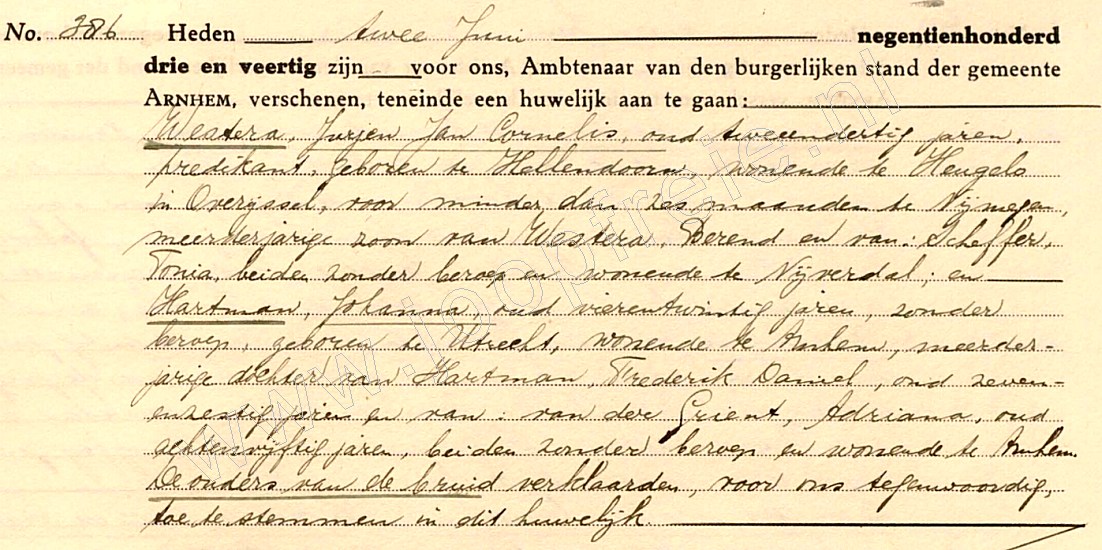 No. 386 Heden twee Juni negentienhonderd
drie en veertig zijn voor ons, Ambtenaar van den burgerlijken stand der gemeente
ARNHEM, verschenen, teneinde een huwelijk aan te gaan:
Westera, Jurjen Jan Cornelis, oud tweeendertig jaren,
predikant, geboren te Hellendoorn, wonende te Hengelo
in Overijssel, voor minder dan zes maanden te Nijmegen,
meerderjarige zoon van Westera, Berend en van: Scheffer,
Tonia, beiden zonder beroep en wonende te Nijverdal; en
Hartman, Johanna, oud vierentwintig jaren, zonder
beroep, geboren te Utrecht, wonende te Arnhem, meerder-
jarige dochter van Hartman, Frederik Daniel, oud zeven-
enzestig jaren en van: van der Grient, Adriana, oud
achtenvijftig jaren, beiden zonder beroep en wonende te Arnhem.
De ouders van de bruid verklaarden, voor ons tegenwoordig,
toe te stemmen in dit huwelijk.